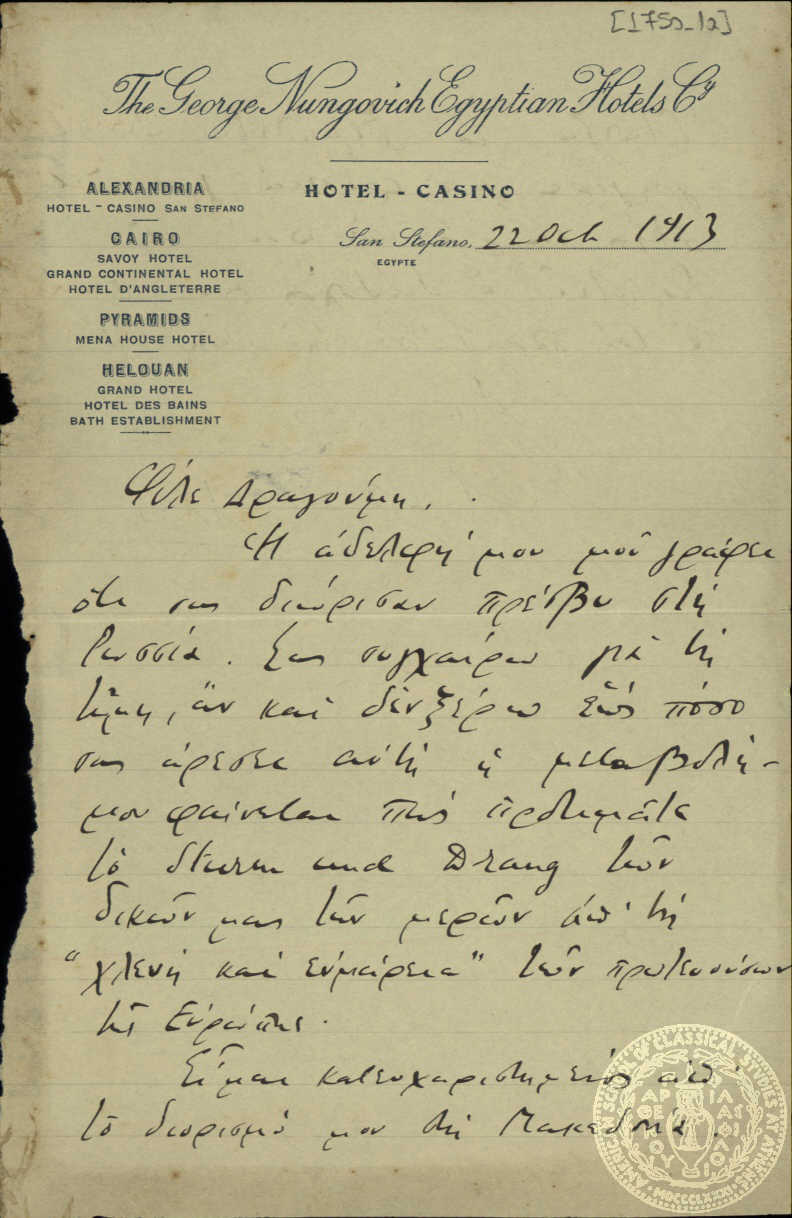 [1750_12]
The George Nungovich Egyptian Hotels Cy
ALEXANDRIA
HOTEL - CASINO SAN STEFANO
CAIRO
SAVOY HOTEL
GRAND CONTINENTAL HOTEL
HOTEL D'ANGLETERRE
PYRAMIDS
MENA HOUSE HOTEL
HELOUAN
GRAND HOTEL
HOTEL DES BAINS
BATH ESTABLISHMENT
HOTEL - CASINO
San Stefano, 22 Oct 1913
EGYPTE
Φίλε Δραγούμη,
Ἡ ἀδελφή μου μοῦ γράφει
ὅτι σας διώρισαν πρέσβυ στὴ
Ρωσσία. Σας συγχαίρω γιὰ τὴ
τιμη, ἄν καὶ δὲν ξέρω ἕως πόσο
σας ἄρεσει αὐτὴ ἡ μεταβολὴ -
μου φαίνεται πὼς προτιμᾶτε
τὸ Sturm und Drang τῶν
δικῶν μας τῶν μερῶν ἀπ' τὴ
"χλενη καὶ εὐμάρεια" τῶν πρωτευουσων
τῆς Εὐρώπης.
Εἶμαι κατευχαριστημένος ἀπ'
τὸ διορισμό μου στὴ Μακεδονία.
AMERICAN SCHOOL OF CLASSICAL STUDIES AT ATHENS
MDCCCLXXXI